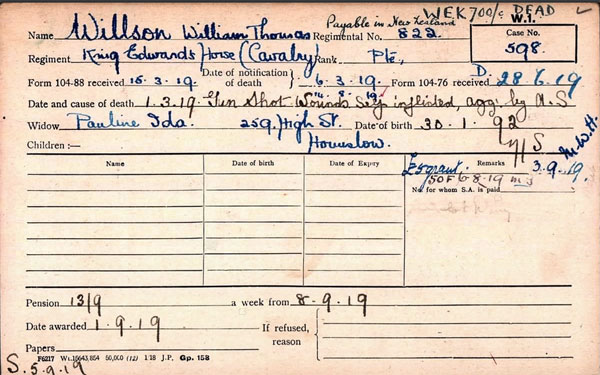 Payable in New Zealand WEK700/c DEAD
W.1.
Name Willson William Thomas Regimental No. 822
Case No. 598.
Regiment King Edwards Horse (Cavalry) Rank Pte,
Form 104-88 received 15.3.19. Date of notification of death 6.3.19. Form 104-76 received D. 28.6.19
14.8.19
Date and cause of death 1.3.19. Gun Shot Wounds Self inflicted, agg. by A.S
Widow Pauline Ida. 259, High St. Date of birth 30.1.92
Hounslow.
Children :— M.W.H.
Name Date of birth Date of Expiry Remarks 3.9.19.
£5 grant.
50F 6 8.19
No. for whom S.A. is paid
Pension 13/9 a week from 8-9.19
Date awarded 1.9.19 If refused, reason
Papers
F6217 Wt.16643,854 50,000 (12) 1/18 J.P. Gp. 158
S. 5.9.19